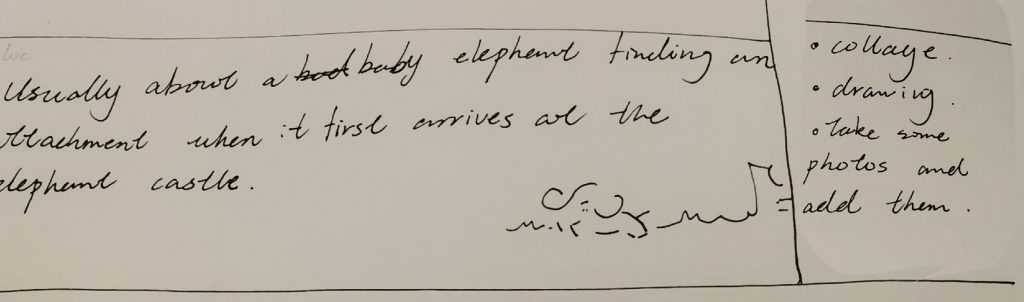 Usually about a bad baby elephant finding an
attachment when it first arrives at the
elephant castle.
• collage.
• drawing.
• take some
photos and
add them.